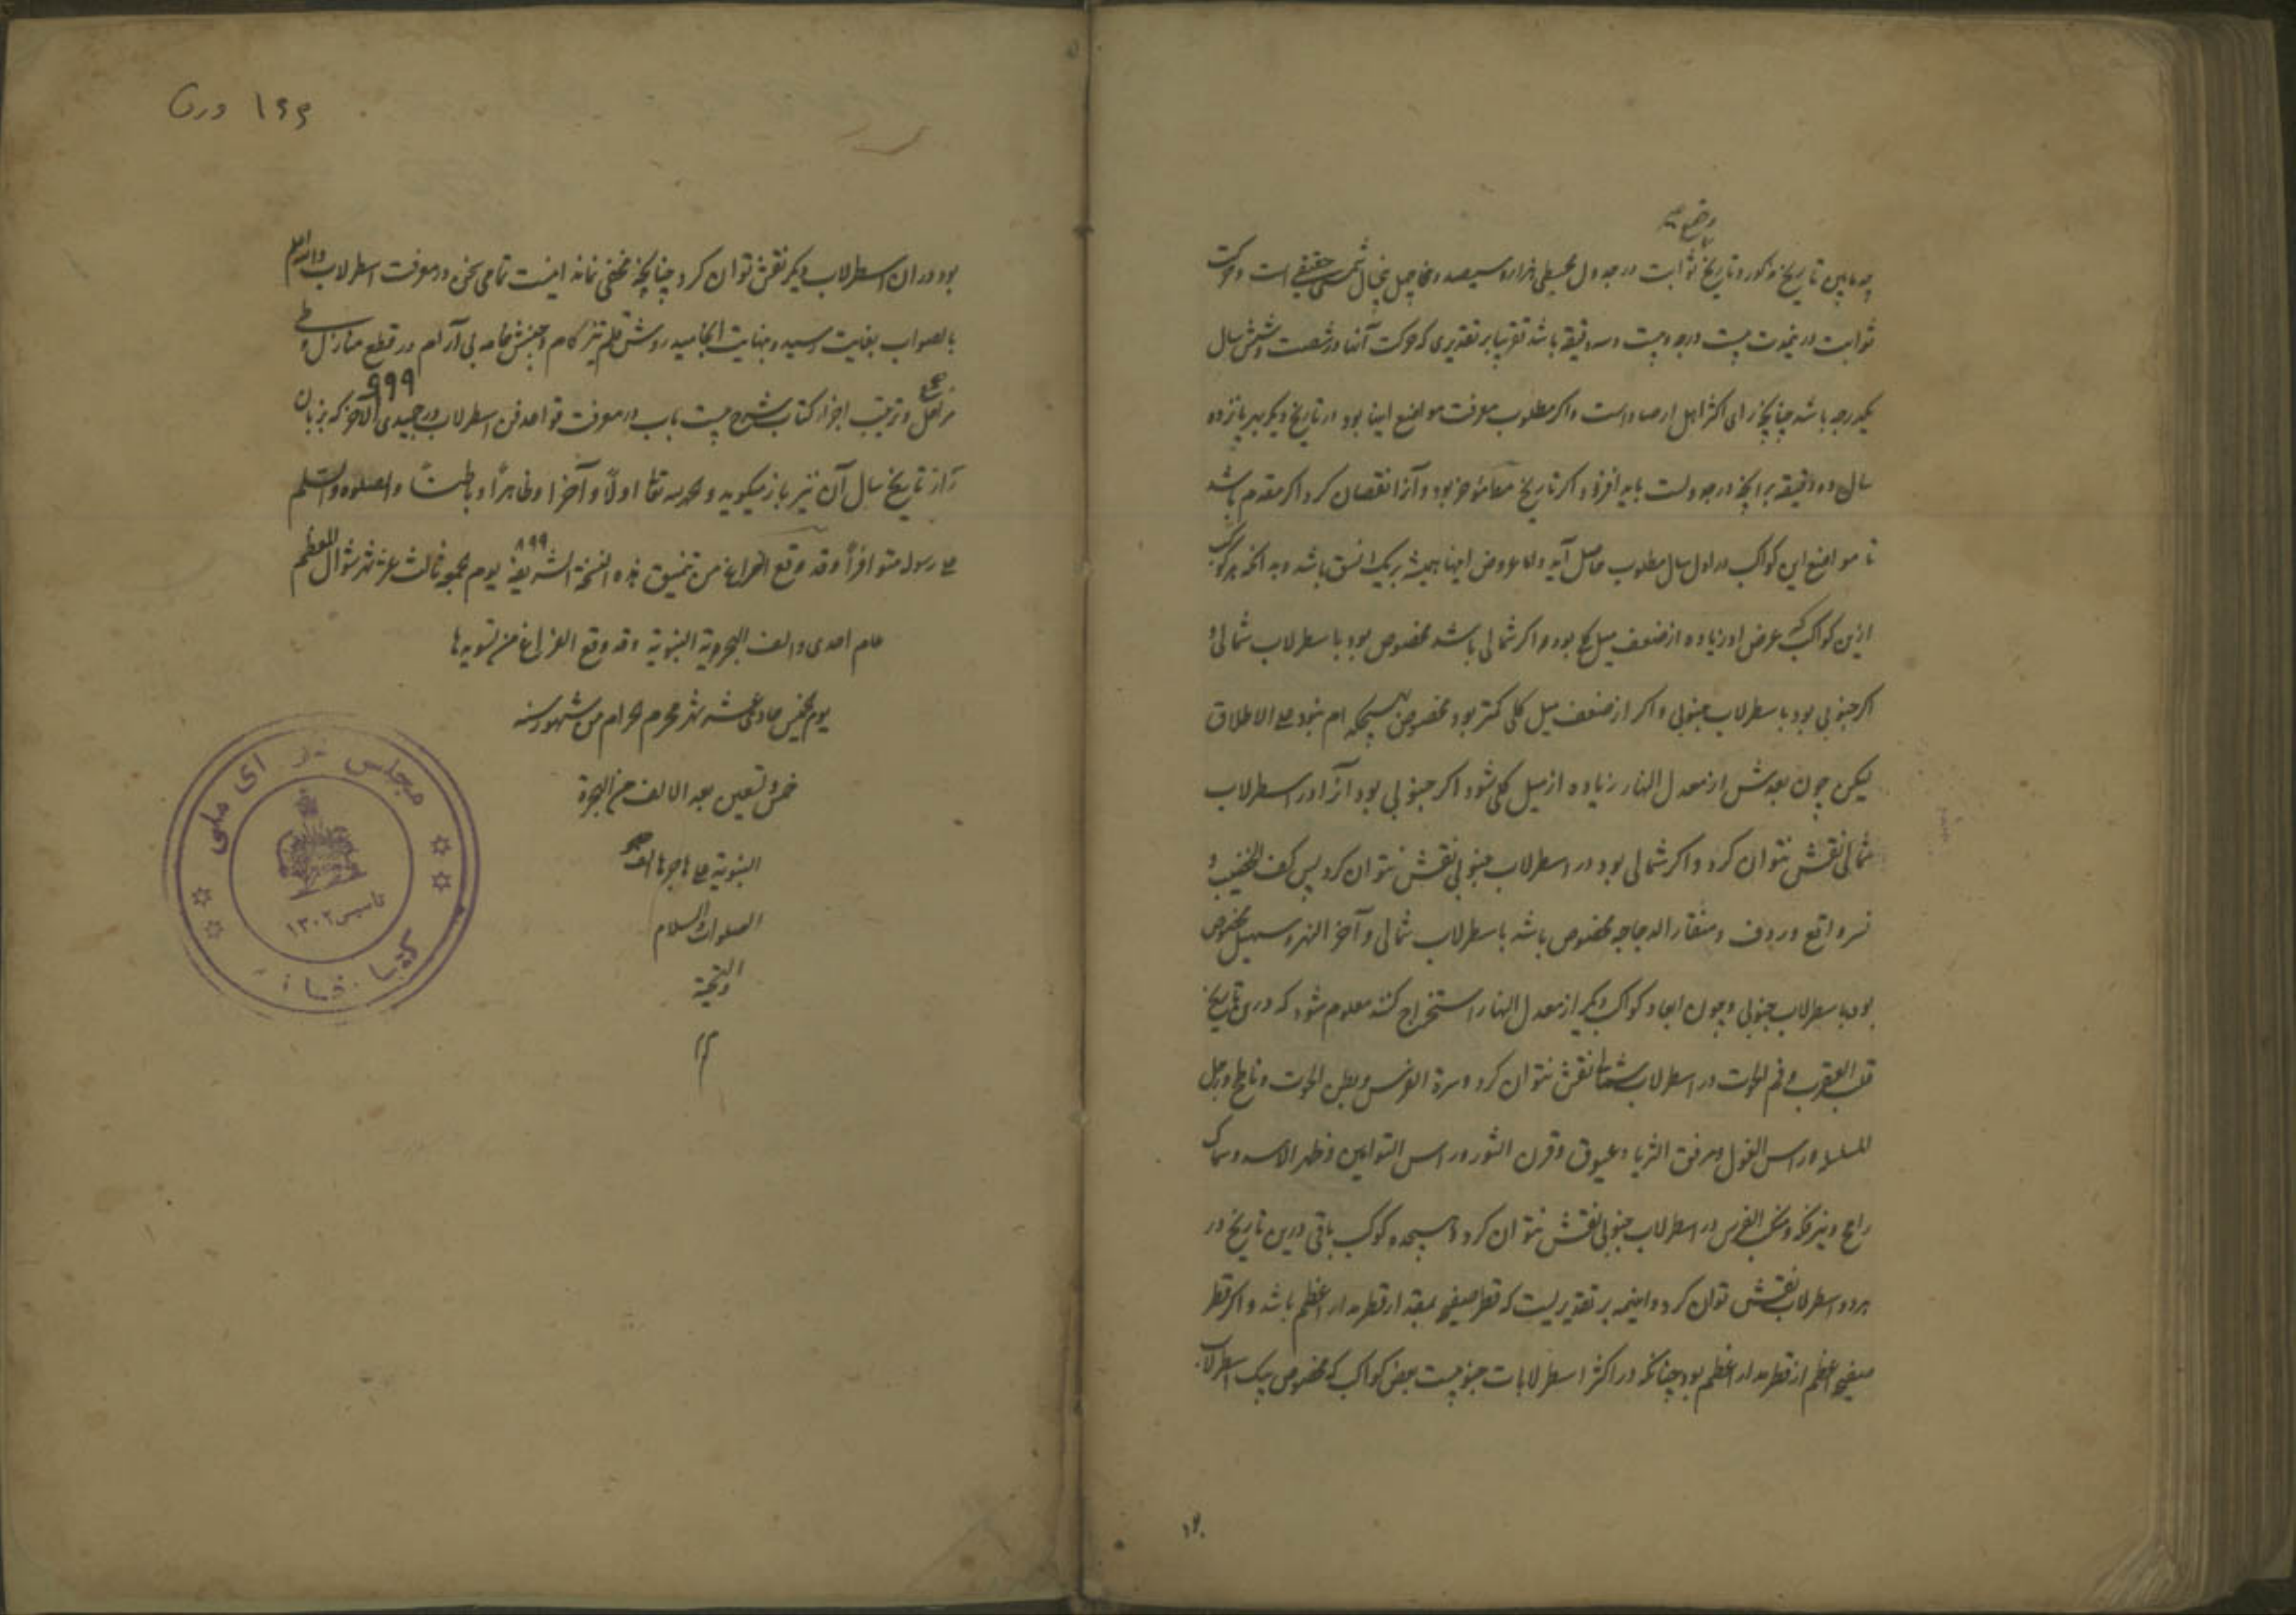 چه مابین تاریخ مذکور و تاریخ ثوابت در جدول مجسطی هزار و سیصد و پنجاه سال شمسی حقیقی است و حرکت
ثوابت درینمدت بیست درجه و بیست و سه دقیقه باشد تقریبا بر تقدیری که حرکت آنها در شصت و شش سال
یکدرجه باشد چنانچه رای اکثر اهل ارصاد است و اکر مطلوب معرفت مواضع اینها بود در تاریخ دیکر بهر پانزده
سال ده دقیقه بر آنچه در جدولست باید افزود اکر تاریخ موخر بود و آنرا نقصان کرد اکر مقدم باشد
تا مواضع این کواکب در اول سال مطلوب حاصل آید و اما عروض اینها همیشه بر یک نسق باشد و بدانکه هر کوکب
ازین کواکب که عرض او زیاده از ضعف میل کلی بود و اکر شمالی باشد مخصوص بود باسطرلاب شمالی و
اکر جنوبی بود باسطرلاب جنوبی و اکر از ضعف میل کلی کمتر بود مخصوص بهیچکدام نبود علی الاطلاق
لیکن چون بعدش از معدل النهار زیاده از میل کلی شود اکر جنوبی بود آنرا در اسطرلاب
شمالی نقش نتوان کرد و اکر شمالی بود در اسطرلاب جنوبی نقش نتوان کرد پس کف الخضیب و
نسر واقع و ردف و منقار الدجاجه مخصوص باشد باسطرلاب شمالی و آخر النهر و سهیل مخصوص
بود باسطرلاب جنوبی و چون ابعاد کواکب دیکر از معدل النهار استخراج کنند معلوم شود که درین تاریخ
قلب العقرب و فم الحوت در اسطرلاب شمالی نقش نتوان کرد و سرة الفرس و بطن الحوت و ناطح و رجل
المسلسله و راس الغول و مرفق الثریا و عیوق و قرن الثور و راس التوامین و ظهر الاسد و سماک
رامح و نیر فکه و منکب الفرس در اسطرلاب جنوبی نقش نتوان کرد و هیجده کوکب باقی درین تاریخ در
هر دو اسطرلاب نقش توان کرد و اینهمه بر تقدیریست که قطر صفیحه بمقدار قطر مدار اعظم باشد و اکر قطر
صفیحه اعظم از قطر مدار اعظم بود چنانکه در اکثر اسطرلابات جنوبیست بعضی کواکب که مخصوص بیک اسطرلاب
۱۶۶ ورق
بود در ان اسطرلاب دیکر نقش توان کرد چنانچه مخفی نماند اینست تمامی سخن در معرفت اسطرلاب والله اعلم
بالصواب بغایت رسید و بنهایت انجامید روش قلم تیز کام و جنبش خامه بی آرام در قطع منازل و طی
مراحل و ترتیب اجزاء کتاب شرح بیست باب در معرفت قواعد فن اسطرلاب در جمیدی الاخر که بزبان
۹۹۹
راز تاریخ سال آن نیز باز میکوید و الحمد لله تعالی اولاً و آخرا و ظاهراً و باطناً و الصلوة والسلم
۸۹۹
علی رسوله متوافراً و قد وقع الفراغ من تنمیق هذه النسخة الشریفة یوم الجمعه ثالث عشر شهر شوال المعظم
عام احدی و الف الهجریة النبویة و قد وقع الفراغ من تسویدها
یوم الخمیس حادی عشر شهر محرم الحرام من شهور سنه
خمس و تسعین بعد الالف من الهجرة
النبویة علی هاجرها الف
الصلوات والسلام
والتحیة
م
مجلس شورای ملی
تاسیس ۱۳۰۲
کتابخانه